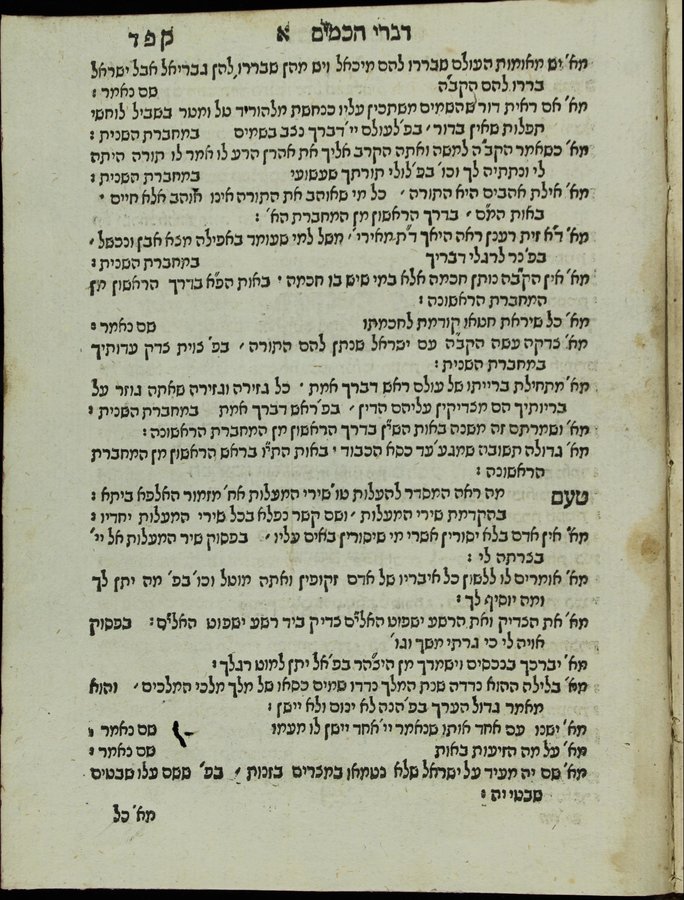 דברי חכמים א קפד
מא׳ יש מאומות העולם שבררו להם מיכאל ויש מהן שבררו להן גבריאל אבל ישראל
בררו להם הקב״ה שם נאמר :
מא׳ אם ראית דור שהשמים משתכין עליו כנחשת מלהוריד טל ומטר בשביל לוחשי
תפלות שאין בדור , בפ׳ לעולם יי׳ דברך נצב בשמים במחברת השנית :
מא׳ כשאמר הקב״ה למשה ואתה הקרב אליך את אהרן הרע לו אמר לו תורה היתה
לי ונתתיה לך וכו׳ בפ׳ לולי תורתך שעשועי במחברת השנית :
מא׳ אילת אהבים היא התורה , כל מי שאוהב את התורה אינו אוהב אלא חיים •
באות המ״ם , בדרך הראשון מן המחברת הא׳ :
מא׳ ד״א זית רענן ראה היאך ד״ת מאירי׳ , משל למי שעומד באפילה מצא אבן ונכשל ,
בפ׳ נר לרגלי דבריך במחברת השנית :
מא׳ אין הקב״ה נותן חכמה אלא במי שיש בו חכמה • באות הפ״א בדרך הראשון מן
המחברת הראשונה :
מא׳ כל שיראת חטאו קודמת לחכמתו שם נאמר :
מא׳ צדקה עשה הקב״ה עם ישראל שנתן להם התורה , בפ׳ צוית צדק עדותיך
במחברת השנית :
מא׳ מתחילת ברייתו של עולם ראש דברך אמת • כל גזירה וגזירה שאתה גוזר על
בריותיך הם מצדיקין עליהם הדין , בפ׳ ראש דברך אמת במחברת השנית :
מא׳ ושמרתם זה משנה באות השי״ן בדרך הראשון מן המחברת הראשונה :
מא׳ גדולה תשובה שמגע׳ עד כסא הכבוד • באות התי״ו בראש הראשון מן המחברת
הראשונה :
טעם מה ראה המסדר להעלות טו׳ שירי המעלות אח׳ מזמור האלפא ביתא :
בהקדמת שירי המעלות , ושם קשר נפלא בכל שירי המעלות יחדיו :
מא׳ אין אדם בלא יסורין אשרי מי שיסורין באים עליו , בפסוק שיר המעלות אל יי׳
בצרתה לי :
מא׳ אומרים לו ללשון כל איבריו של אדם זקופין ואתה מוטל וכו׳ בפ׳ מה יתן לך
ומה יוסיף לך :
מא׳ את הצדיק ואת הרשע ישפוט האלי״ם צדיק ביד רשע ישפוט האלי״ם : בפסוק
אויה לי כי גרתי משך וגו׳
מא׳ יברכך בנכסים וישמרך מן היצ״הר בפ׳ אל יתן למוט רגלך :
מא׳ בלילה ההוא נדדה שנת המלך נדדו שמים כסאו של מלך מלכי המלכים , והוא
מאמר גדול הערך בפ׳ הנה לא ינום ולא יישן :
מא׳ ישנו עם אחד אותו שנאמר יי׳ אחד יישן לו מעמו שם נאמר :
מא׳ על מה הזיעות באות שם נאמר :
מא׳ שם יה מעיד על ישראל שלא נטמאו במצרים בזנות , בפ׳ ששם עלו שבטים
שבטי יה :
מא׳ כל